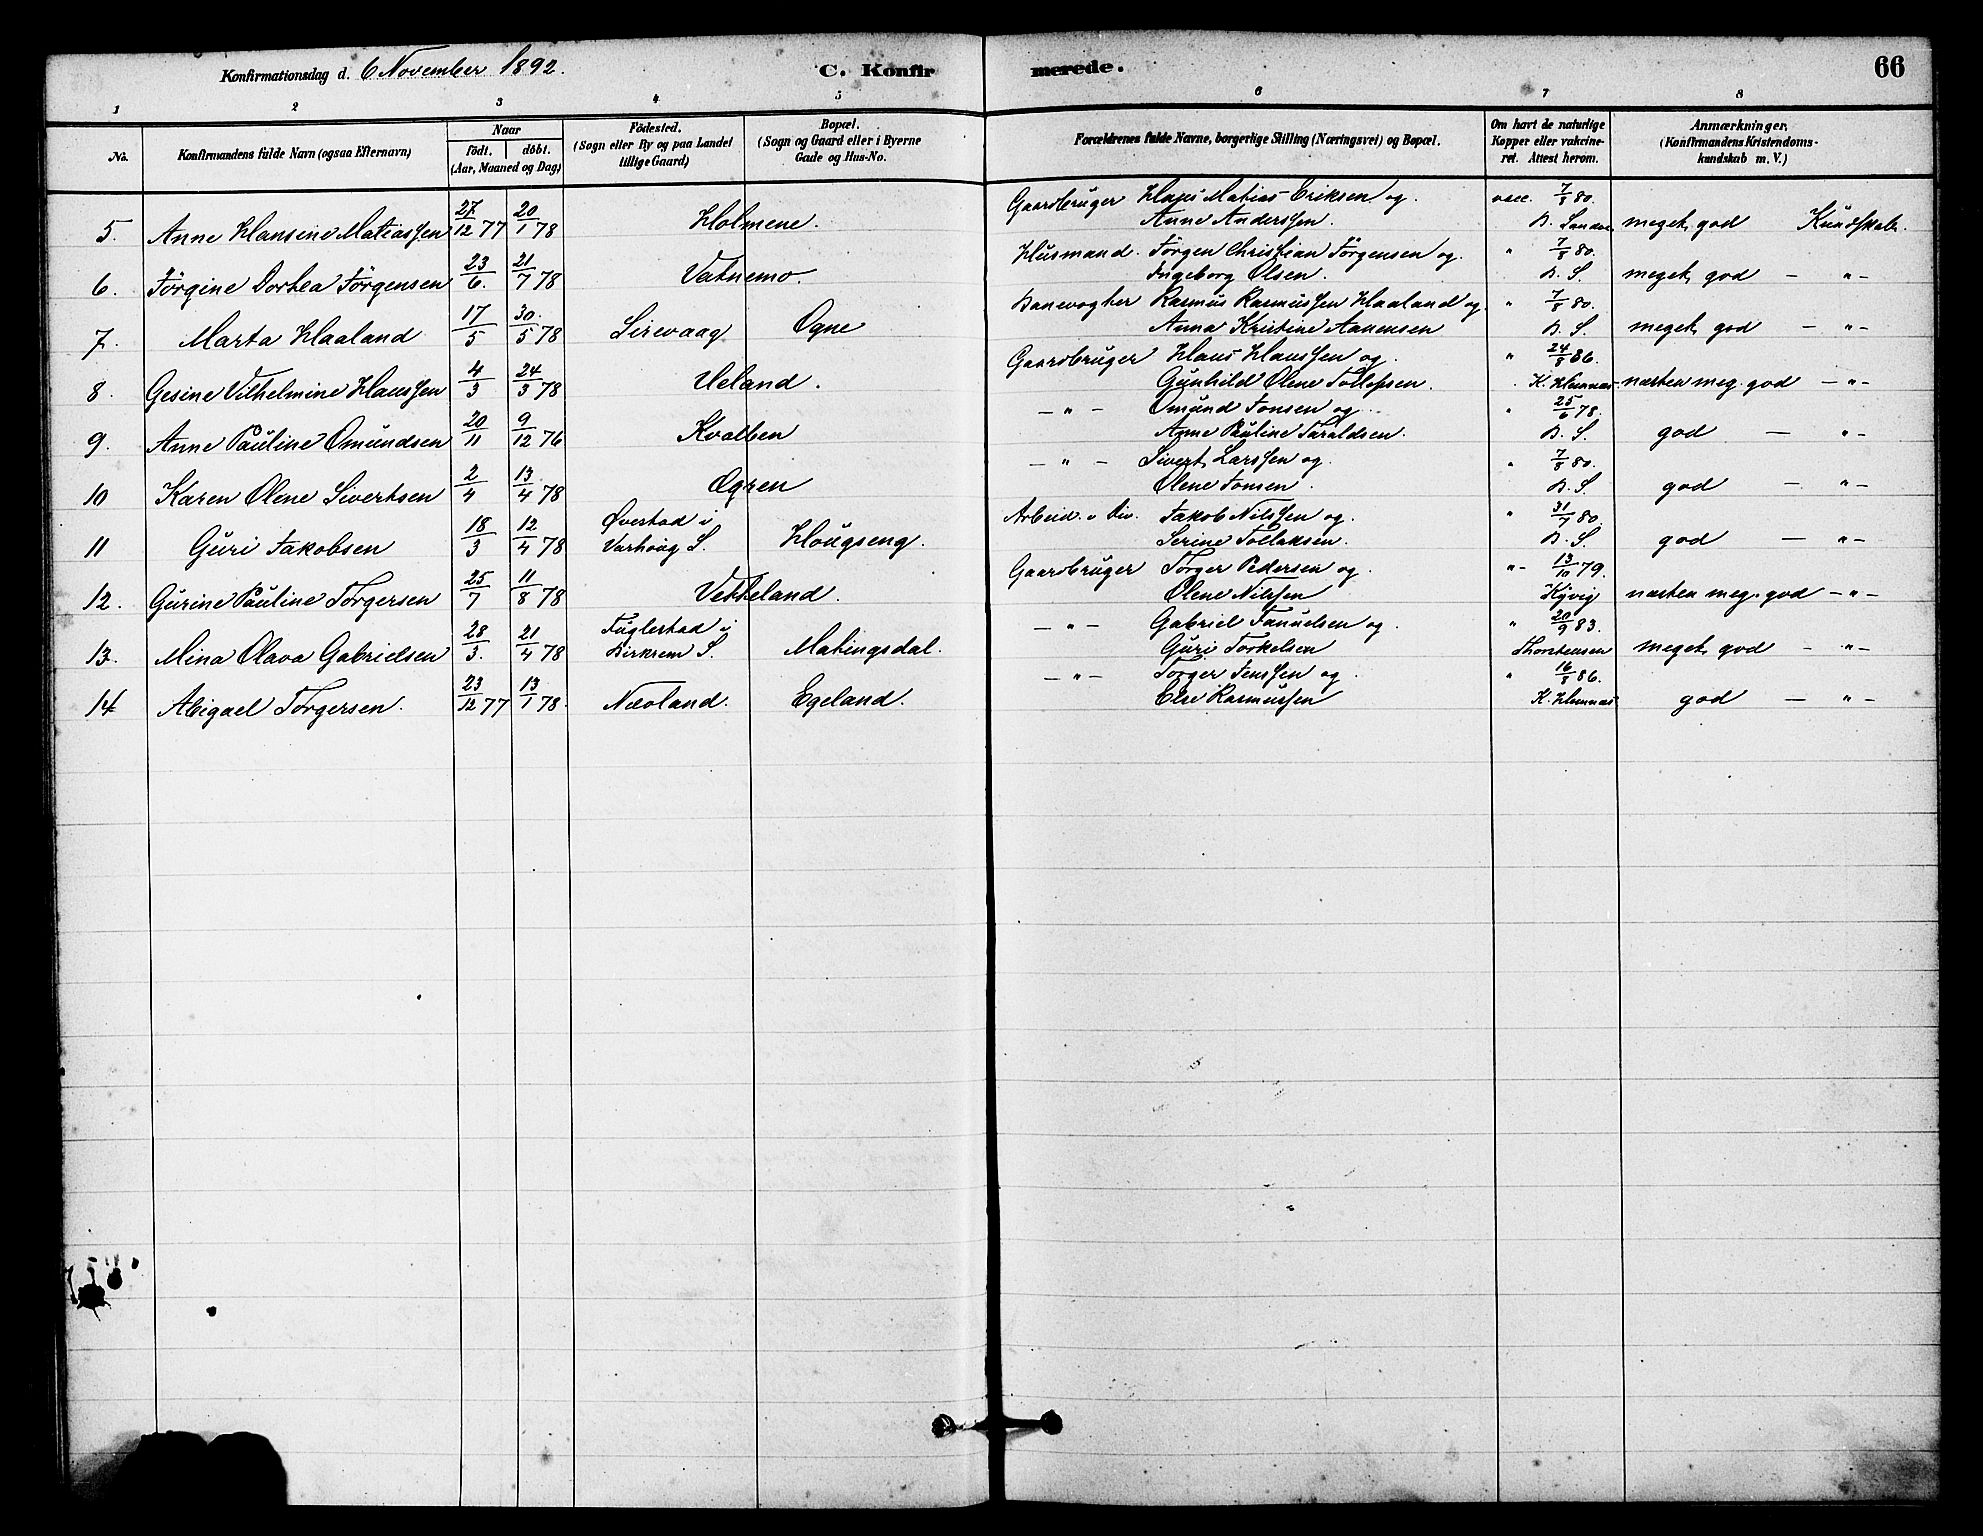 Konfirmationsdag d. 6 November 1892. C. Konfirmerede. 66
1 2 3 4 5 6 7 8
No. Konfirmandens fulde Navn (ogsaa Efternavn) Naar födt. döbt. (Aar, Maaned og Dag) Födested. (Sogn eller By og paa Landet tillige Gaard) Bopæl. (Sogn og Gaard eller i Byerne Gade og Hus-No. Forældrenes fulde Navne, borgerlige Stilling (Næringsvei) og Bopæl. Om havt de naturlige Kopper eller vakcineret. Attest herom. Anmærkninger. (Konfirmandens Kristendomskundskab m. V.)
5. Anne Hansine Matiassen 27/12 77 20/1 78 Holmene. Gaardbruger Hans Matias Eriksen og vacc. 7/8 80.
Anne Anderssen. B. meget god Kundskab.
6. Jörgine Dorthea Jörgensen 23/6. 21/7 78 Vatnemo. Husmand. Jörgen Christian Jörgensen og " 7/8 80.
Ingeborg Olsen. B. S. meget god — " —
7. Marta Haaland 17/5 30/5 78 Sirevaag Ogne Banevogter Rasmus Rasmussen Haaland og " 7/8 80.
Anna Kristine Aanensen B. S. meget god — " —
8. Gesine Vilhelmine Hanssen 4/3 24/3 78 Ueland. Gaardbruger Hans Hanssen og " 24/8 86.
Gunhild Olene Tollefsen. K. næsten meg. god — " —
9. Anne Pauline Omundsen 20/11 9/12 76 Kvalben — " — Omund Jonsen og " 25/6 78.
Anne Pauline Taraldsen. B. S. god — " —
10 Karen Olene Sivertsen 2/4 13/4 78 Ægren — " — Sivert Larssen og " 7/8 80.
Olene Jonsen. B. S. god — " —
11 Guri Jakobsen 18/3 12/4 78 Øvestad i Hougseng. Arbeid. v. Jakob Nilssen og " 31/7 80.
Varhoug S. Serine Tollaksen. B. S. god — " —
12. Gurine Pauline Torgersen 25/7 11/8 78 Vetteland. Gaardbruger Torger Pedersen og " 13/10 79.
Olene Nilssen næsten meg. god — " —
13. Mina Olava Gabrielsen 28/3. 21/4 78 Fuglestad i Matingsdal. — " — Gabriel og " 20/9 83.
Birkrem S. Guri Torkelsen Thorstensen meget god — " —
14 Abigael Torgersen. 23/12 77 13/1 78. Nævland. Egeland. — " — Torger Jenssen og " 16/8 86.
Else Rasmussen K. god — " —